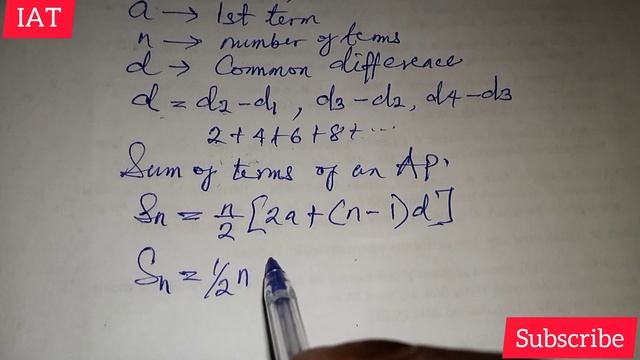 IAT
a → 1st term
n → number of terms
d → Common difference
d = d2 - d1, d3 - d2, d4 - d3
2 + 4 + 6 + 8 + ...
Sum of terms of an AP.
Sn = n/2 [2a + (n - 1)d]
Sn = 1/2 n
Subscribe